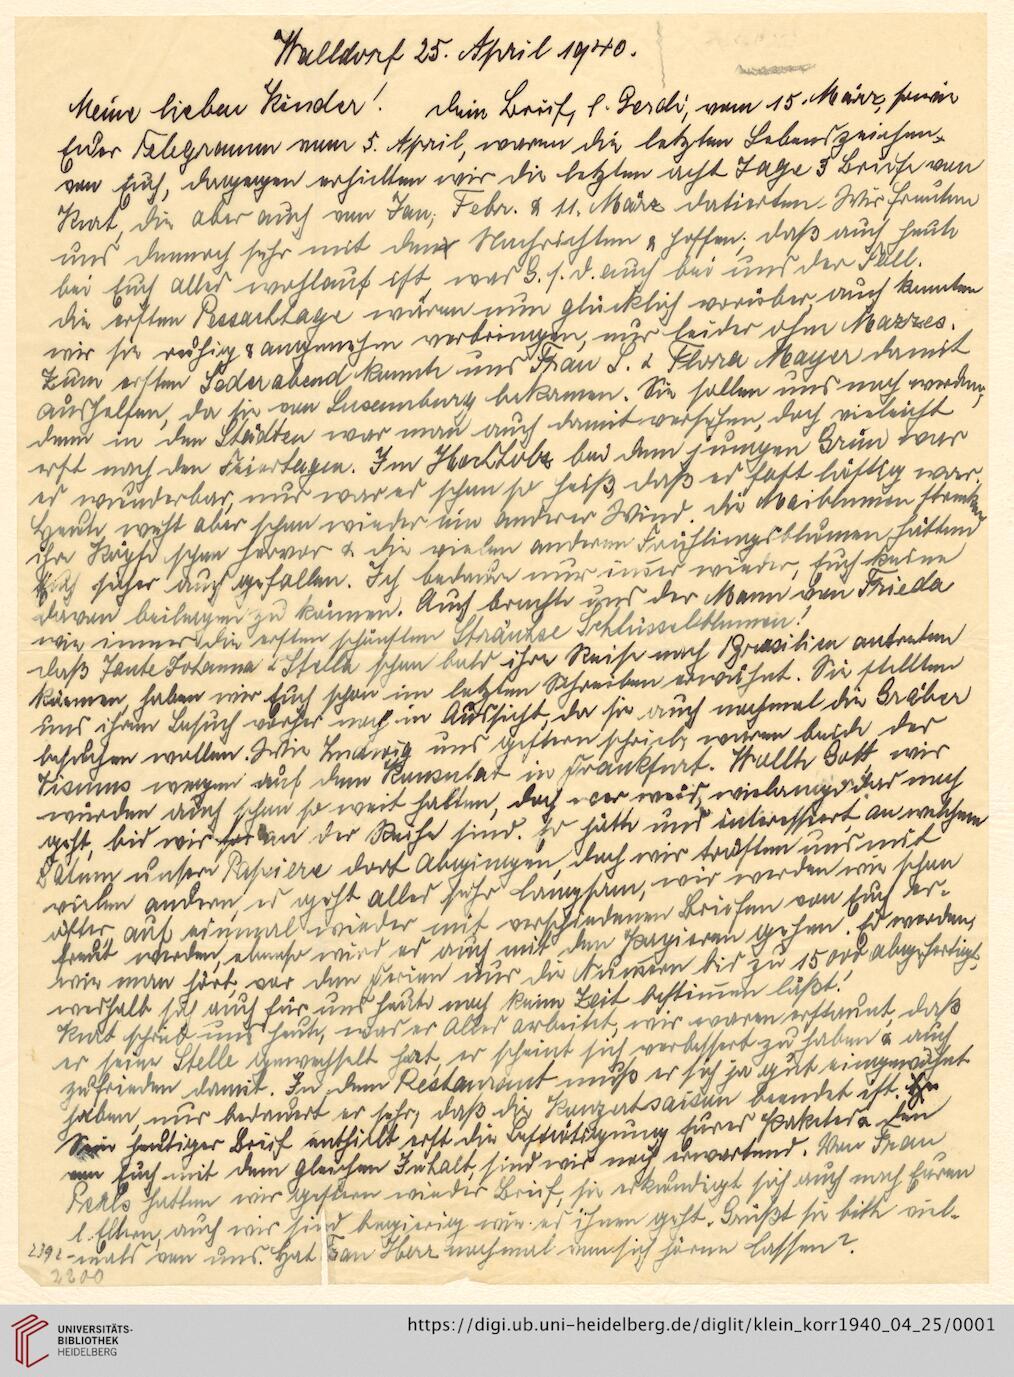 Walldorf 25. April 1940.
Meine lieben Kinder! Dein Brief, l. Gerdi, vom 15. März, sowie
Euer Telegramm vom 5. April, waren die letzten Lebenszeichen
von Euch, dagegen erhielten wir die letzten acht Tage 3 Briefe von
Kurt, die aber auch von Jan., Febr. & 11. März datierten. Wir freuten
uns dennoch sehr mit den Nachrichten & hoffen, daß auch heute
bei Euch alles wohlauf ist, was G. s. d. auch bei uns der Fall.
Die ersten Pessachtage wären nun glücklich vorüber, auch konnten
wir sie ruhig & angenehm verbringen, nur leider ohne Mazzes.
Zum ersten Sederabend konnte uns Frau S. & Flora Mayer damit
aushelfen, da sie von Luxemburg bekamen. Sie sollen uns noch werden,
denn in den Städten war man auch damit versehen, doch vieleicht
erst nach den Feiertagen. Im bei dem jungen Grün war
es wunderbar, nur war es schon so heiß, daß es fast lästig war.
Heute weht aber schon wieder ein anderer Wind. Die Maiblumen strecken
ihre Köpfe schon hervor & die vielen anderen Frühlingsblumen hätten
Euch sicher auch gefallen. Ich bedaure nur immer wieder, Euch keine
davon beilegen zu können. Auch brachte uns der Mann von Frieda
wie immer die ersten schönsten Sträusse Schlüsselblumen!
Daß Tante Johanna & Stella schon bald ihre Reise nach Brasilien antreten
können, haben wir Euch schon im letzten Schreiben erwähnt. Sie stellten
uns ihren Besuch vorher noch in Aussicht, da sie auch nochmal die Gräber
besuchen wollen. Wie Ludwig uns gestern schrieb, waren beide der
Visums wegen auf dem Konsulat in Frankfurt. Wollte Gott, wir
würden auch schon so weit halten, doch wer weis, wielange das noch
geht, bis wir an der Reihe sind. Es hätte uns interessiert, an welchem
Datum unsere Papiere dort abgingen, doch wir trösten uns mit
vielen andern, es geht alles sehr langsam, wir werden wie schon
öfter auf einmal wieder mit verschiedenen Briefen von Euch er-
freut werden, ebenso wird es auch mit den Papieren gehen. Es werden,
wie man hört, vor den Ferien nur die Nummern bis zu 15000 abgefertigt,
weshalb sich auch für uns heute noch keine Zeit bestimmen läßt.
Kurt schrieb uns heute, was er Alles arbeitet, wir waren erstaunt, daß
er seine Stelle gewechselt hat, er scheint sich verbessert zu haben & auch
zufrieden damit. In dem Restaurant muß er sich ja gut eingewöhnt
haben, nur bedauert er sehr, daß die Konzertsaison beendet ist.
Sein heutiger Brief enthielt erst die Bestätigung Eures Paketes &
von Euch mit dem gleichen Inhalt, sind wir noch erwartend. Von Frau
hatten wir gestern wieder Brief, sie erkundigt sich auch nach Euren
l. Eltern, auch wir sind begierig wie es ihnen geht. Grüßt sie bitte viel-
mals von uns. Hat Herr nochmal von sich hören lassen?
2392
2200
UNIVERSITÄTS-
BIBLIOTHEK
HEIDELBERG
https://digi.ub.uni-heidelberg.de/diglit/klein_korr1940_04_25/0001